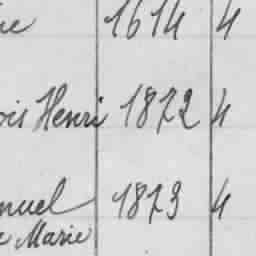 1614 4
ois Henri 1872 4
nuel 1873 4
e Marie